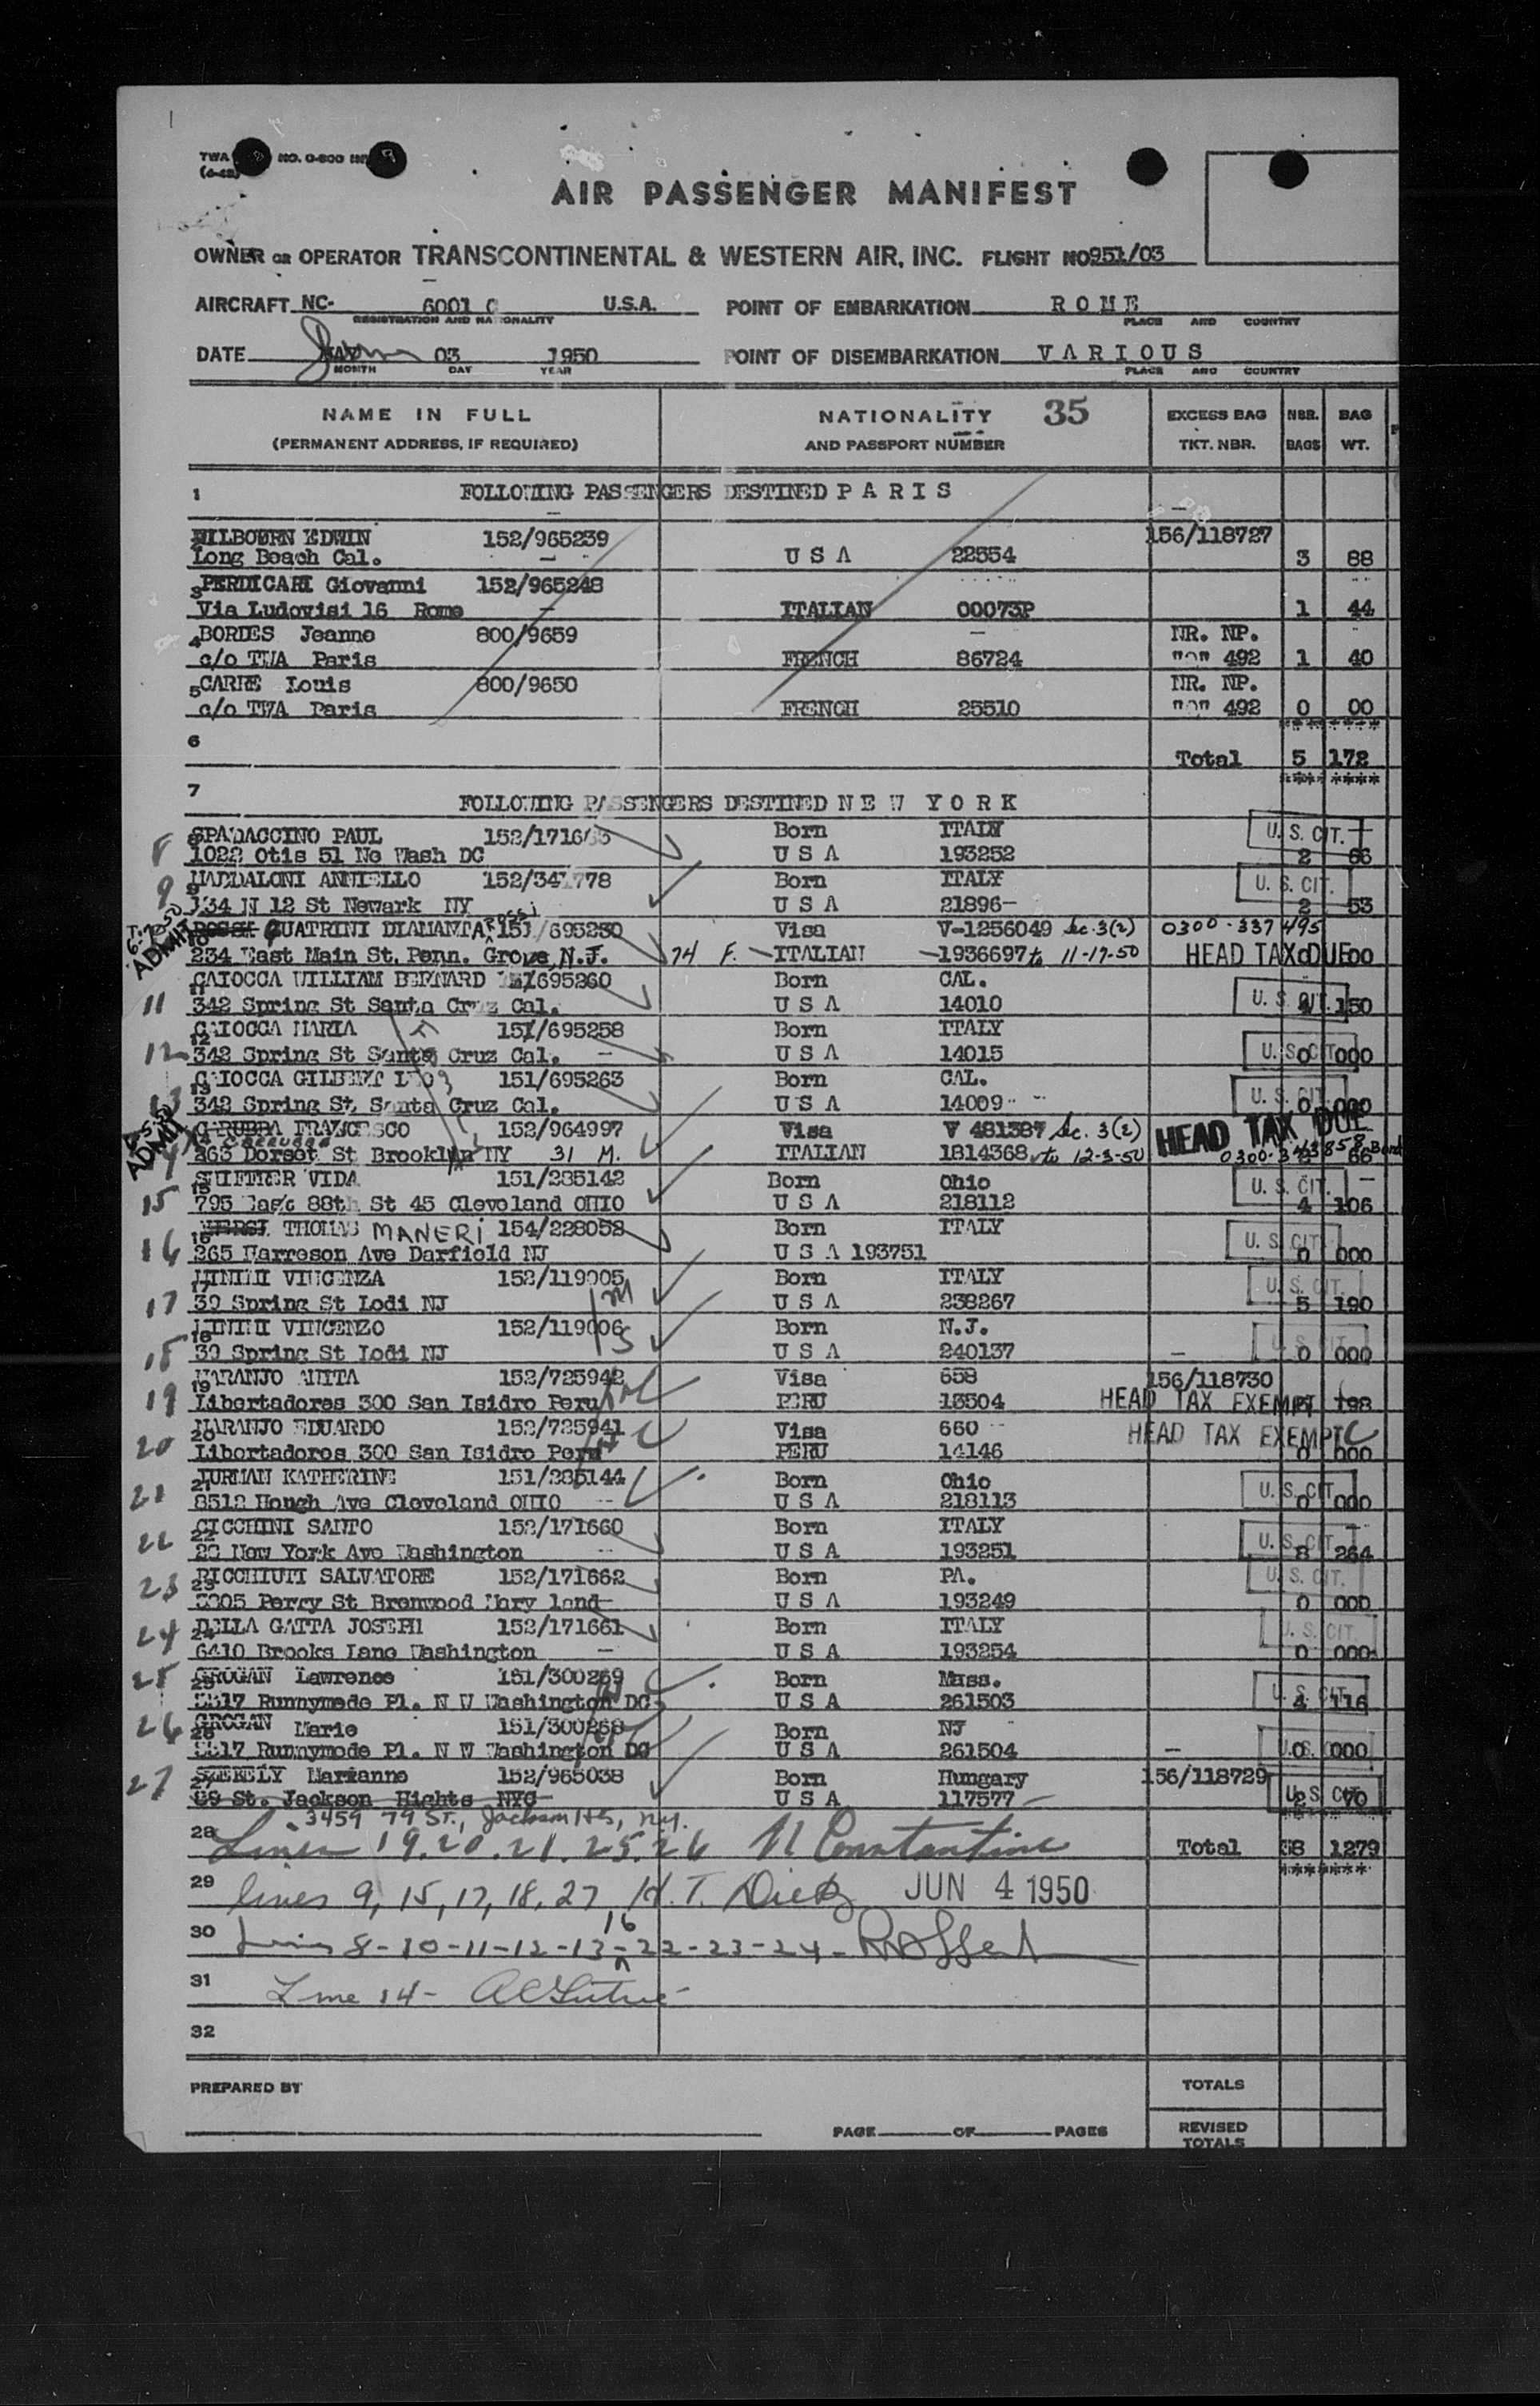 TWA NO. 0-800
AIR PASSENGER MANIFEST
OWNER OR OPERATOR TRANSCONTINENTAL & WESTERN AIR, INC. FLIGHT NO 951/03
AIRCRAFT NC- 6001 C U.S.A. POINT OF EMBARKATION ROME
REGISTRATION AND NATIONALITY PLACE AND COUNTRY
DATE 03 1950 POINT OF DISEMBARKATION VARIOUS
MONTH DAY YEAR PLACE AND COUNTRY
NAME IN FULL NATIONALITY 35 EXCESS BAG NBR. BAG
(PERMANENT ADDRESS, IF REQUIRED) AND PASSPORT NUMBER TKT. NBR. BAGS WT.
1 FOLLOWING PASSENGERS DESTINED PARIS
EDWIN 152/965239 156/118727
Long Beach Cal. U S A 22554 3 88
3 PERDICARI Giovanni 152/965248
Via Ludovisi 16 Rome ITALIAN 00073P 1 44
4 BORDES Jeanne 800/9659 NR. NP.
c/o TWA Paris FRENCH 86724 492 1 40
5 CARRE Louis 800/9650 NR. NP.
c/o TWA Paris FRENCH 25510 492 0 00
6 Total 5 172
7 FOLLOWING PASSENGERS DESTINED NEW YORK
8 SPADACCINO PAUL Born ITALY U. S. CIT.
1022 Otis 51 No Wash DC U S A 193252 2 66
9 MADDALONI ANNIELLO Born ITALY U. S. CIT.
134 N 12 St Newark NY U S A 21896- 2 53
ADMIT QUATRINI DIAMANTA ROSSI 695250 Visa V-1256049 Sec. 3(2) 0300-337495
234 East Main St. Penn. Grove, N.J. 74 F. ITALIAN 1936697 to 11-17-50 HEAD TAX DUE 00
11 CAIOCCA WILLIAM BERNARD 695260 Born CAL.
342 Spring St Santa Cruz Cal. U S A 14010 U. S. CIT. 150
12 CAIOCCA MARIA 151/695258 Born ITALY
342 Spring St Santa Cruz Cal. U S A 14015 U. S. CIT. 0 000
13 CAIOCCA GILBERT 151/695263 Born CAL.
342 Spring St. Santa Cruz Cal. U S A 14009 U. S. CIT. 0 000
ADMIT CARUBBA FRANCESCO 152/964997 Visa V 481387 Sec. 3(2) HEAD TAX DUE
263 Dorset St Brooklyn NY 31 M. ITALIAN 1814368 to 12-3-50 66
15 VIDA 151/285142 Born Ohio U. S. CIT.
795 East 88th St 45 Cleveland OHIO U S A 218112 4 106
16 THOMAS MANERI 154/228052 Born ITALY
265 Harreson Ave Darfield NJ U S A 193751 U. S. CIT. 0 000
17 MININI VINCENZA 152/119005 Born ITALY U. S. CIT.
39 Spring St Lodi NJ U S A 238267 5 190
18 MININI VINCENZO 152/119006 Born N.J.
39 Spring St Lodi NJ U S A 240137 U. S. CIT. 0 000
19 NARANJO ANITA 152/725942 Visa 658 156/118730
Libertadores 300 San Isidro Peru PERU 13504 HEAD TAX EXEMPT 198
20 NARANJO EDUARDO 152/725941 Visa 660 HEAD TAX EXEMPT
Libertadores 300 San Isidro Peru PERU 14146 0 000
21 TURMAN KATHERINE 151/285144 Born Ohio
8512 Hough Ave Cleveland OHIO U S A 218113 U. S. CIT. 0 000
22 CICCHINI SANTO 152/171660 Born ITALY
New York Ave Washington U S A 193251 U. S. CIT. 8 264
23 RICCHIUTI SALVATORE 152/171662 Born PA. U. S. CIT.
Perry St Brenwood Mary land U S A 193249 0 000
24 DELLA GATTA JOSEPH 152/171661 Born ITALY U. S. CIT.
6410 Brooks Lane Washington U S A 193254 0 000
25 GROGAN Lawrence 151/300269 Born Mass.
Runnymede Pl. N W Washington DC U S A 261503 U. S. CIT. 4 116
26 GROGAN Marie 151/300268 Born NJ
Runnymede Pl. N W Washington DC U S A 261504 U. S. 0 000
27 SZEKELY Marianne 152/965038 Born Hungary 156/118729
89 St. Jackson Hights NYC U S A 117577 U. S. CIT. 2 70
3459 79 ST., Jackson Hts, N.Y.
28 Lines 19.20.21.25.26 Constantine Total 38 1279
29 lines 9, 15, 17, 18, 27 H. T. JUN 4 1950
30 Lines 8-10-11-12-13-16-22-23-24-
31 Line 14-
32
PREPARED BY TOTALS
PAGE OF PAGES REVISED TOTALS